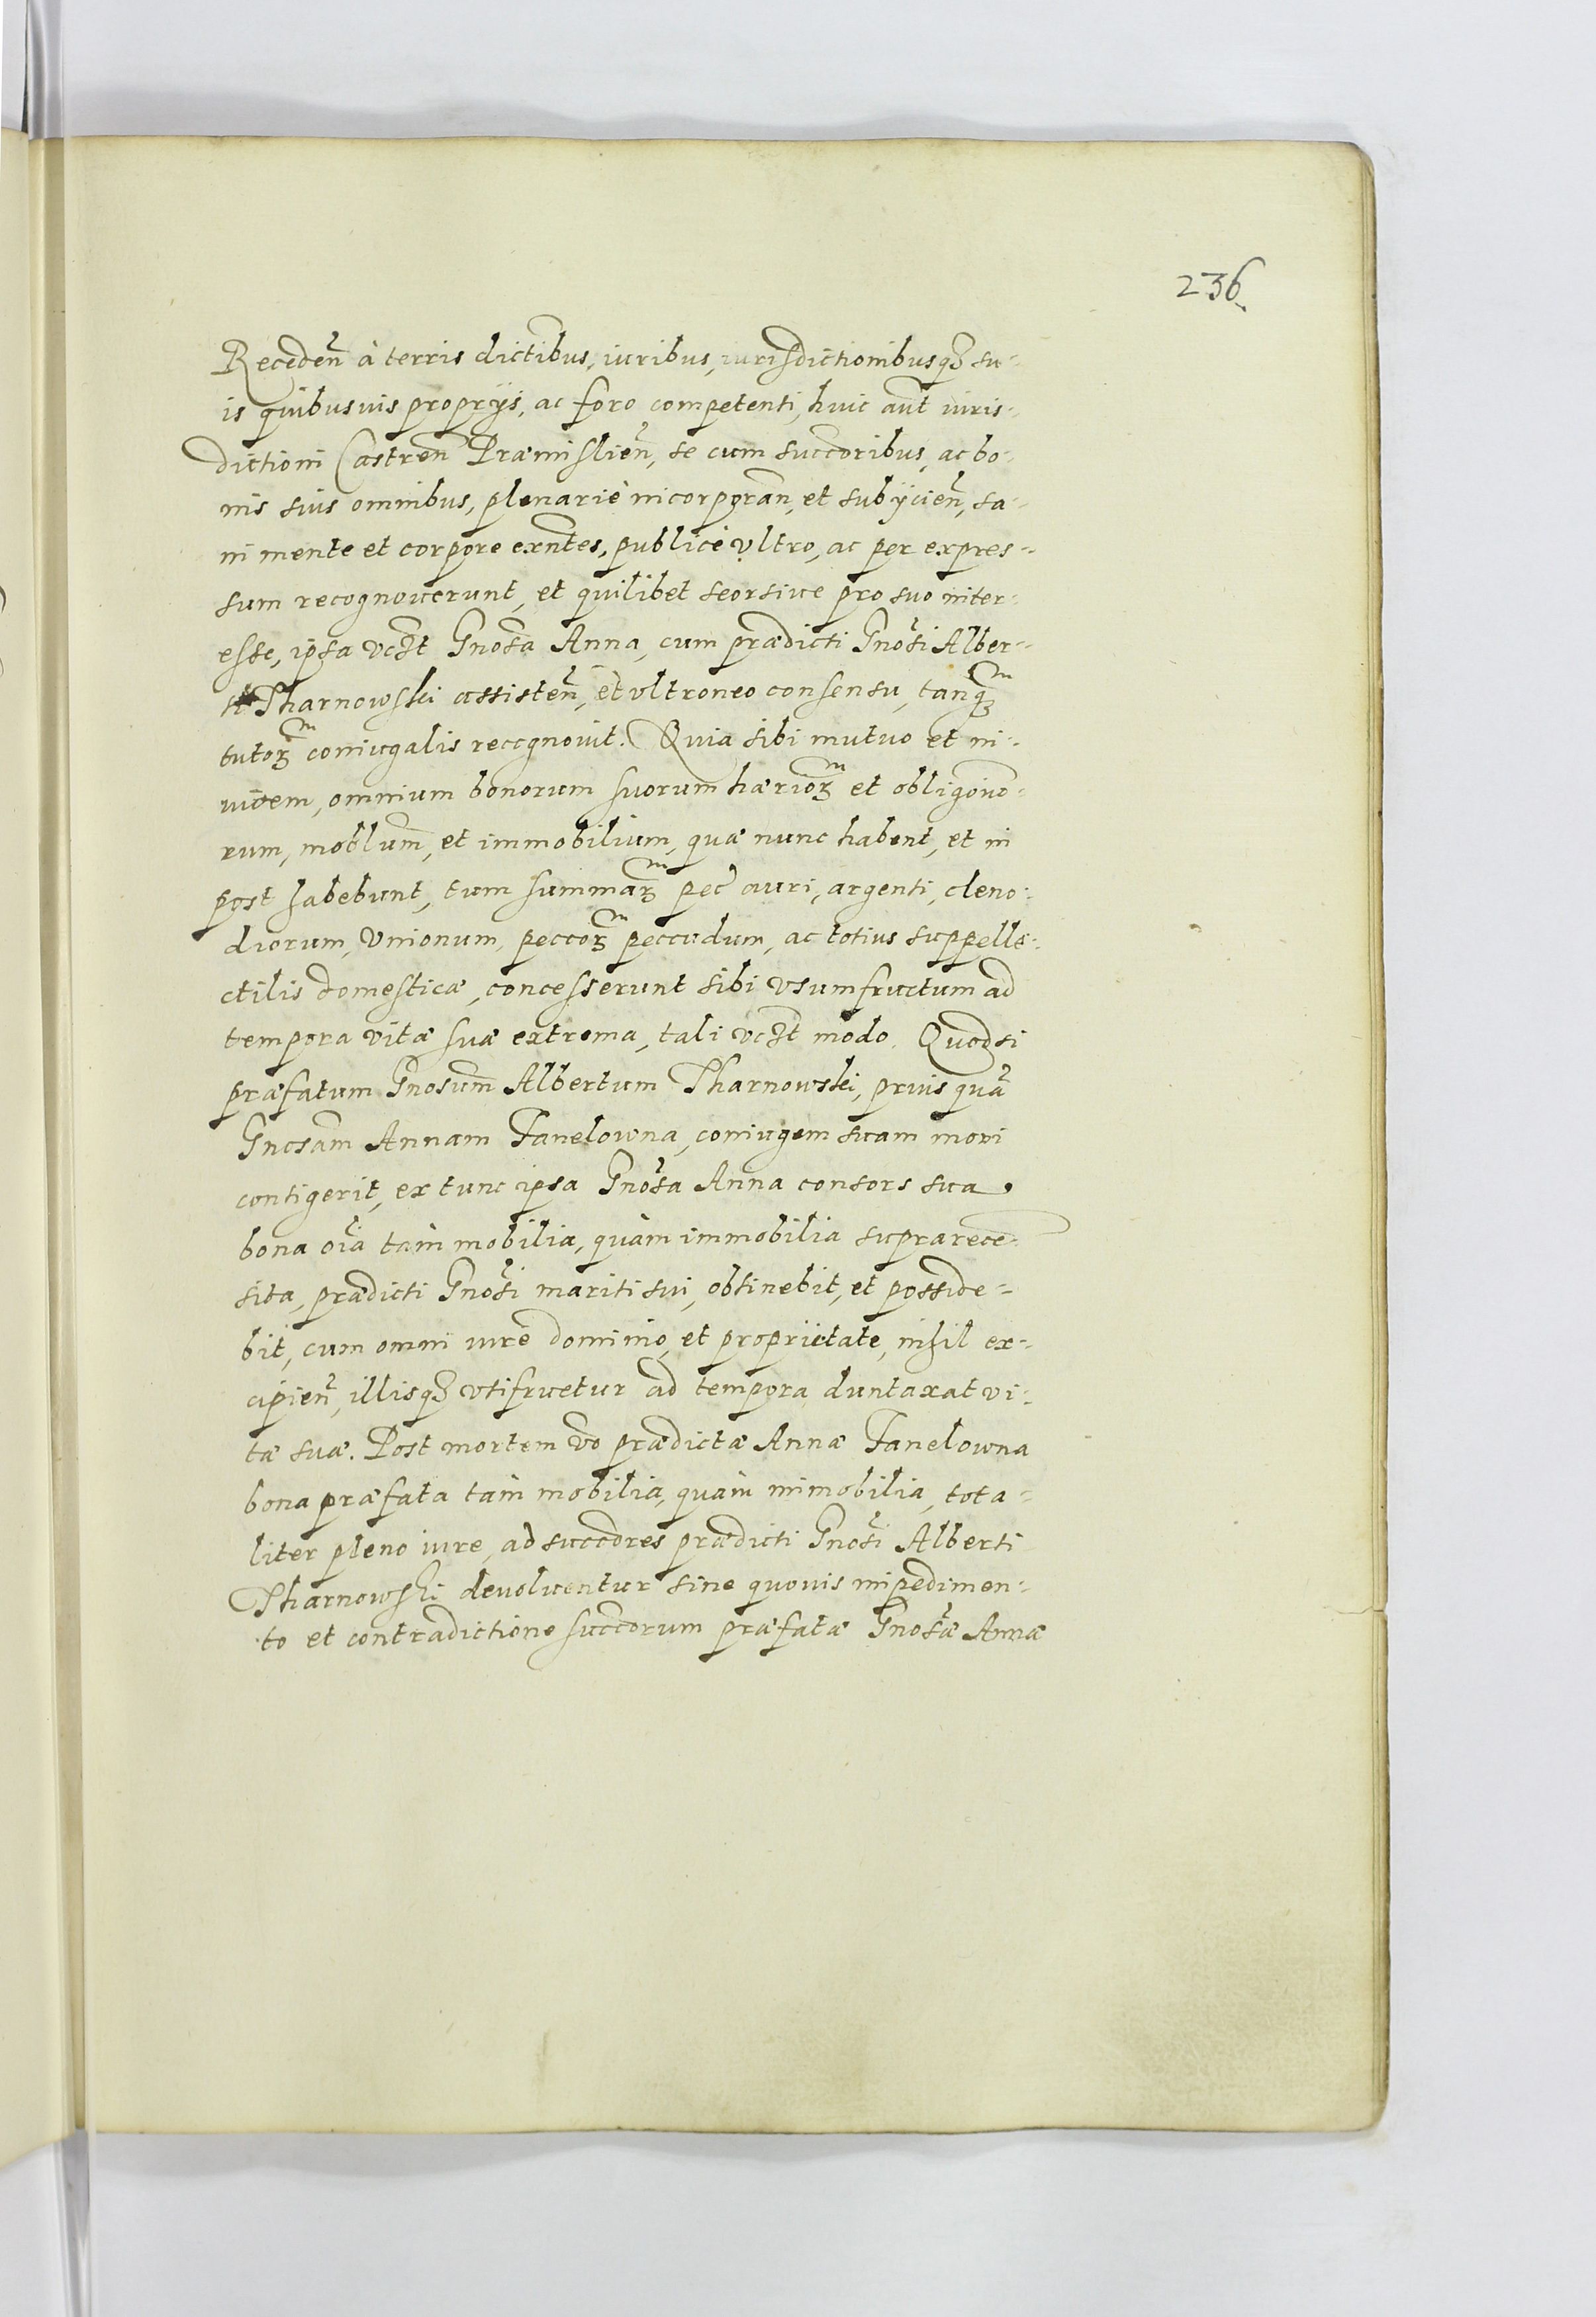 236.
Receden̄ à terris dictibus, iuribus, iurisdictionibusqȝ su-
is quibusuis proprÿs, ac foro competenti, huic aūt iuris-
dictioni Castren̄ Præmislien̄, se cum succoribus, ac bo-
nis suis omnibus, plenariè incorporan̄, et subÿcien̄, sa-
ni mente et corpore exn̄tes, publicè vltro, ac per expres-
sum recognouerunt, et quilibet seorsiue pro suo inter-
esse, ipsa vcȝt Gnosa Anna, cum prædicti Gnosi Alber-
ti Tharnowski assisten̄, et vltroneo consensu, tanqȝm
tutorȝm coniugalis recognouit. Quia sibi mutuo et in-
uicem, omnium bonorum suorum hæriorȝm et obligono-
rum, moblum̄, et immobilium, quæ nunc habent, et in
post habebunt, tum summarȝm pec̄ auri, argenti, cleno-
diorum, Vnionum, peccorȝm peccudum, ac totius suppelle-
ctilis domesticæ, concesserunt sibi vsumfructum ad
tempora vitæ suæ extrema, tali vcȝt modo. Quodsi
præfatum Gnosum Albertum Tharnowski, prius quā
Gnosam Annam Fanelowna, coniugem suam mori
contigerit, ex tunc ipsa Gnosa Anna consors sua
bona oīa tam mobilia, quàm immobilia suprarecē-
sita, prædicti Gnosi mariti sui, obtinebit, et posside-
bit, cum omni iure dominio, et proprietate, nihil ex-
cipien̄, illisqȝ vtifruetur ad tempora duntaxat vi-
tæ suæ. Post mortem vō prædictæ Annæ Fanelowna
bona præfata tam mobilia, quàm immobilia, tota-
liter pleno iure, ad succores prædicti Gnosi Alberti
Tharnowski deuoluentur sine quouis impedimen-
to et contradictione succorum præfatæ Gnosæ Annæ